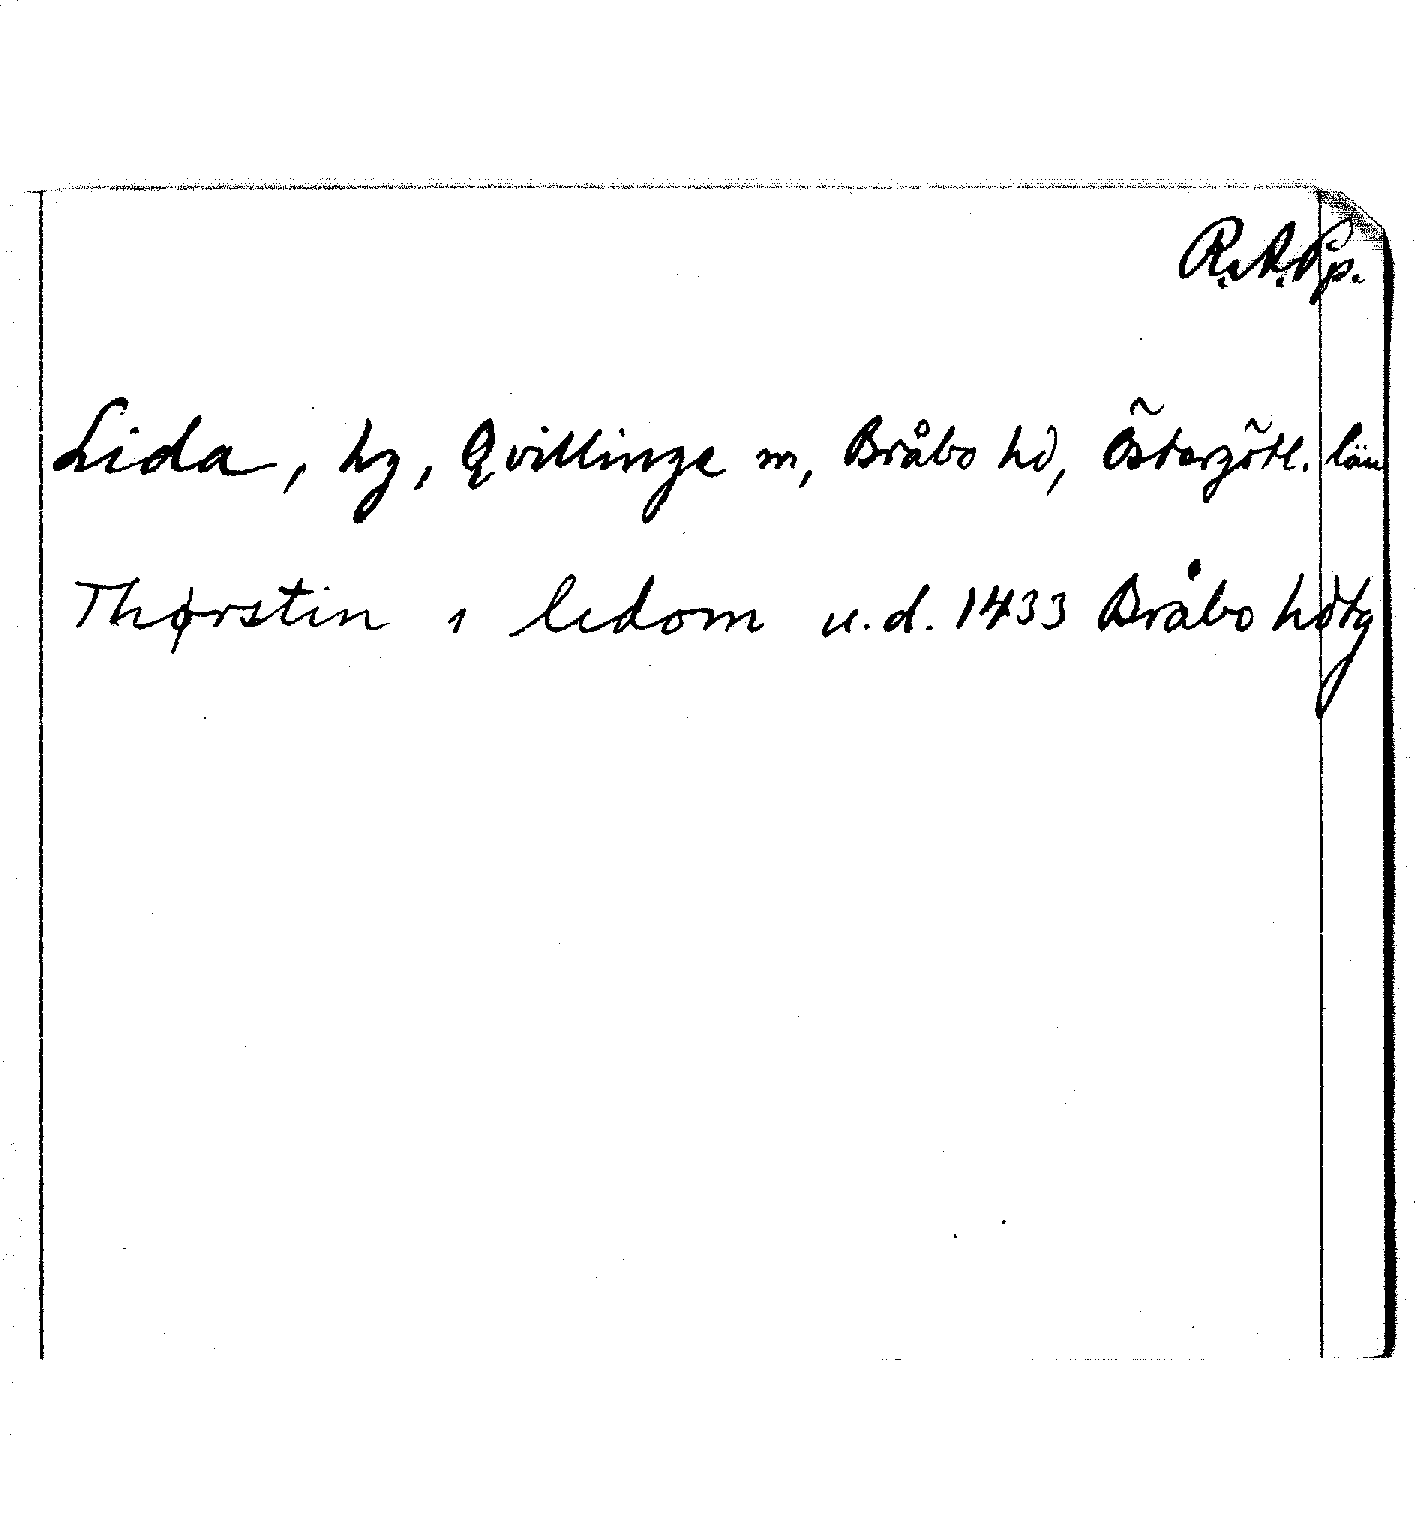 R.A.Pp.
Lida, hg, Qvillinge sn, Bråbo hd, Östergötl. län
Thørstin ı lidom u.d. 1433 Bråbo hdtg